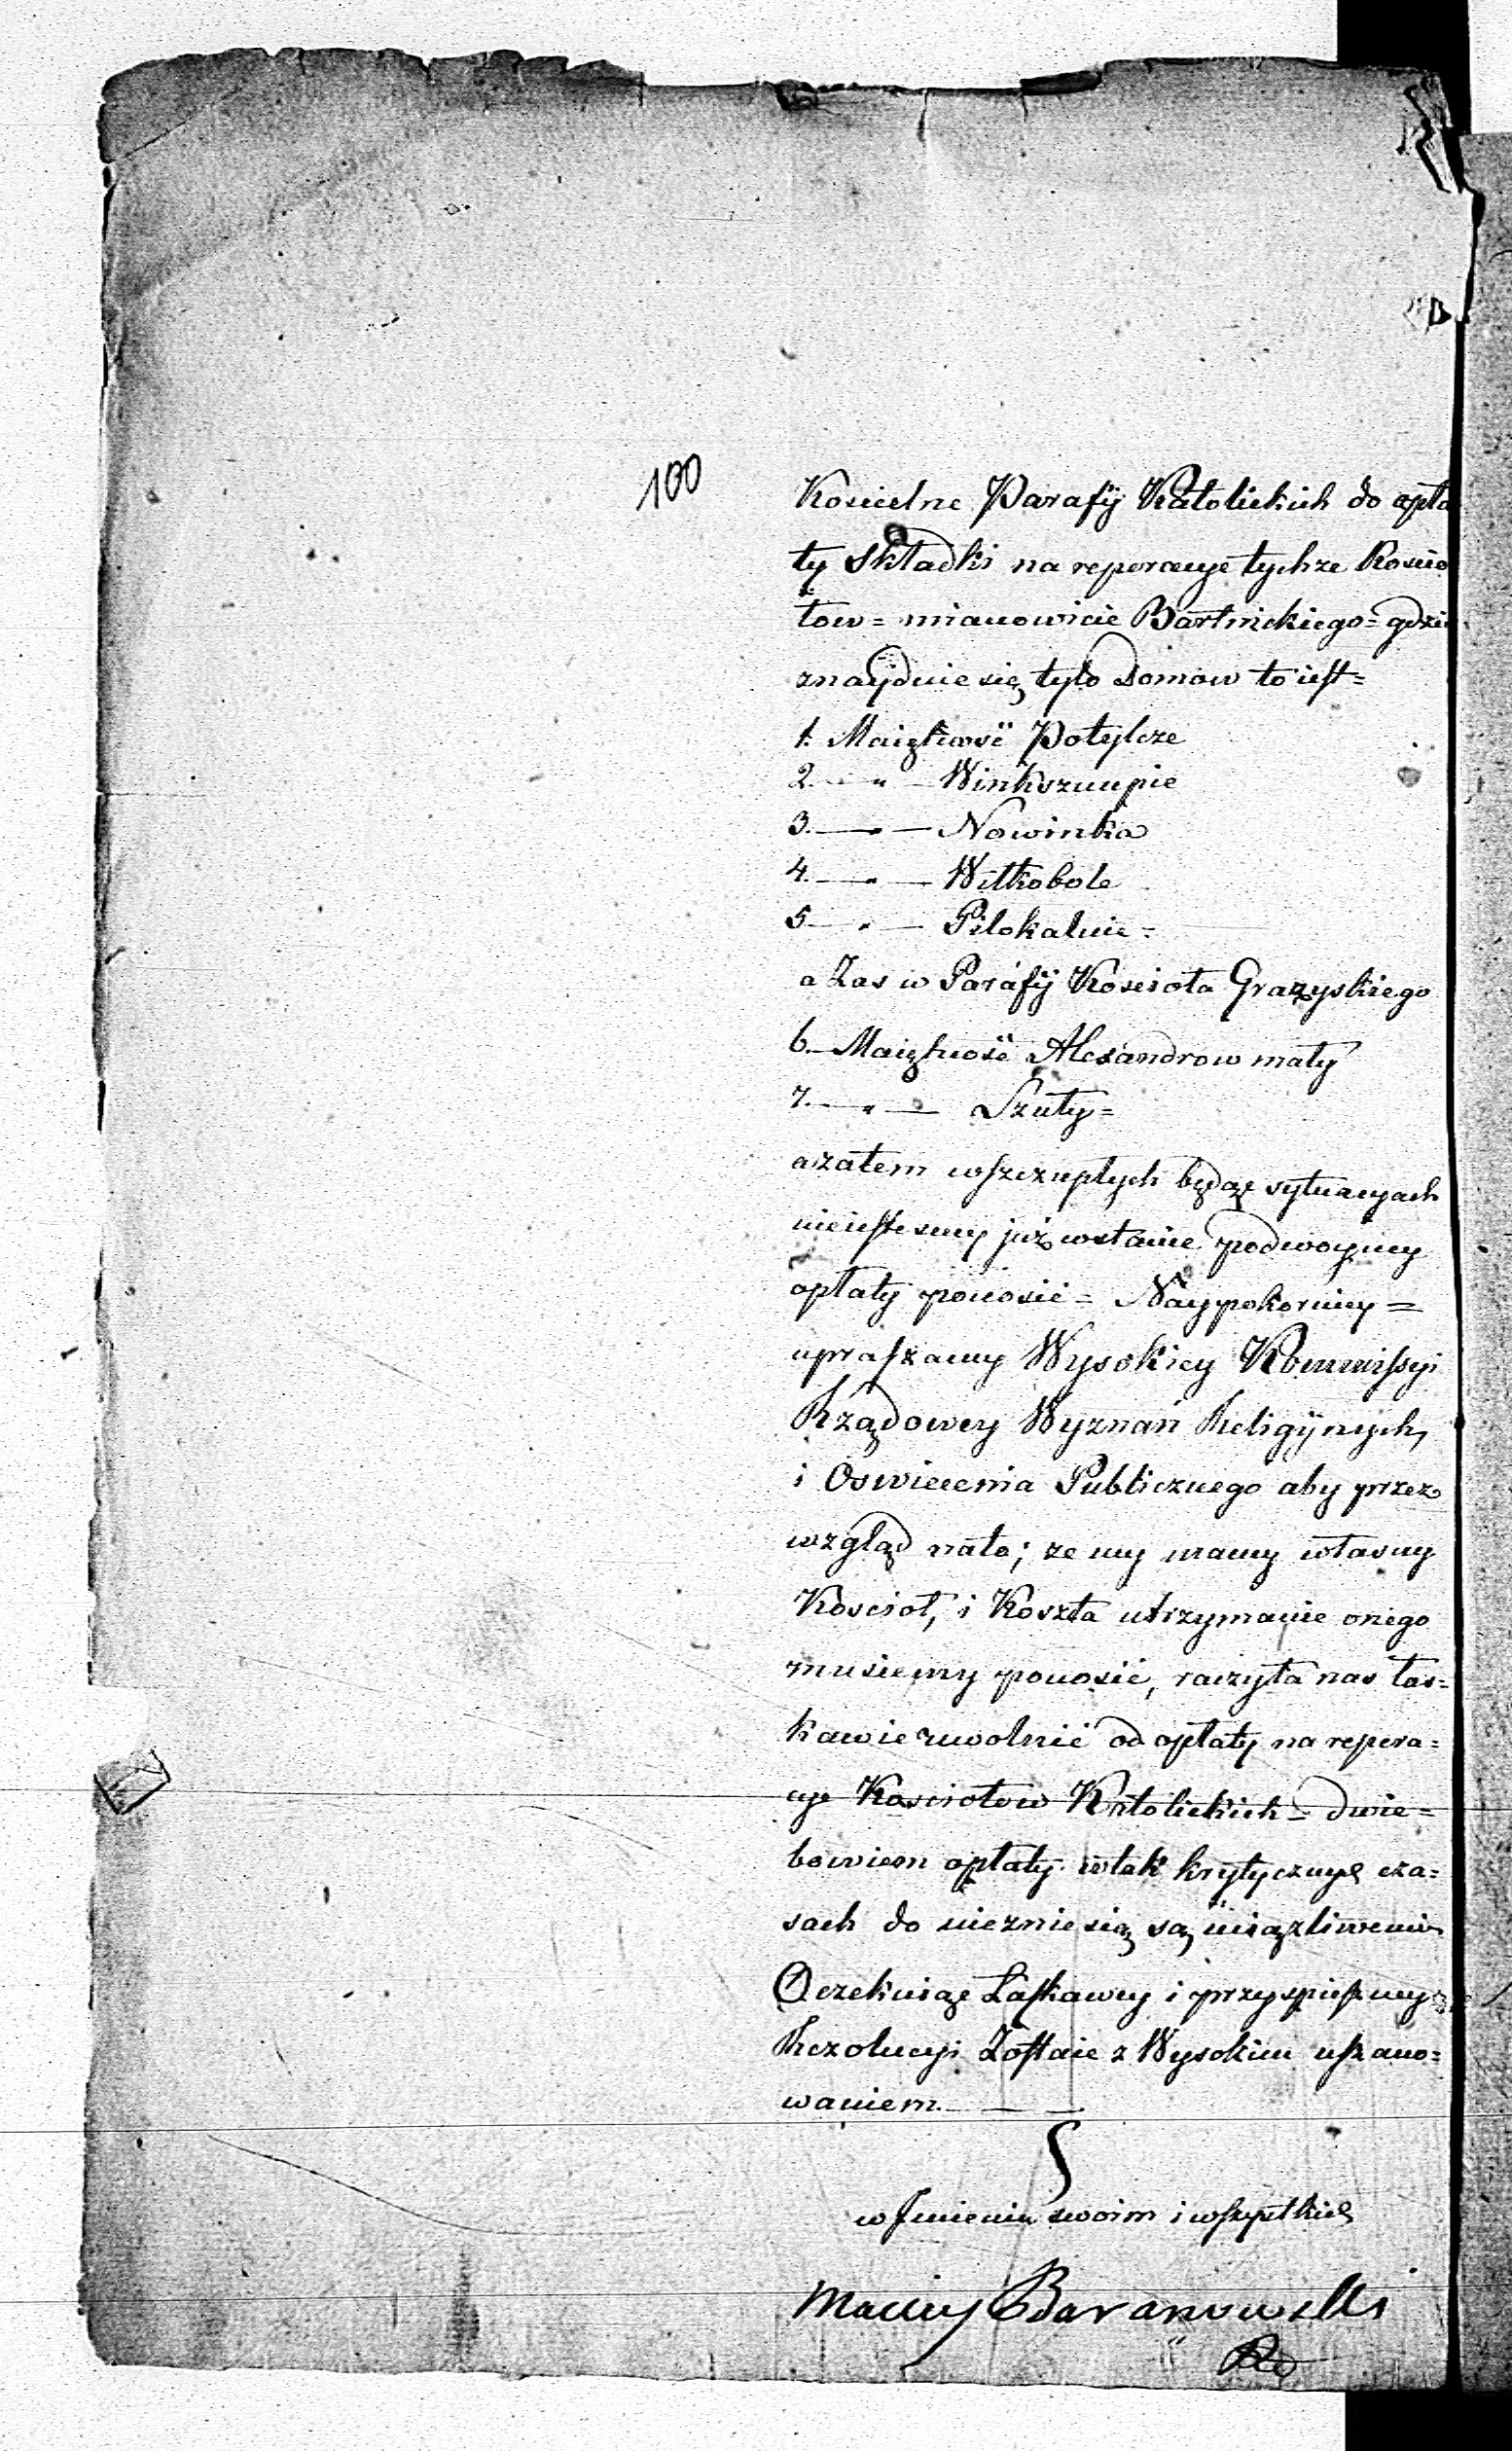 100
Koscielne Parafij Katolickich do opła
ty Składki na reperacye tychze Koscio
łow = mianowicie Bartnickiego = gdzie
znayduie się tylo Domow to iest =
1. Maiętność Potylcze
2. — " — Winksznupie
3. — " — Nowinka
4. — " — Wiłkobole
5 — " — Pilokalnie =
a Zas w Parafij Kosciola Grazyskiego
6. — Maiętność Alexandrow mały
7. — " — Szuły =
azatem wszczupłych będąc sytuacyach
nieiestesmy już wstanie podwoyney
opłaty ponosić = Naypokorniey =
upraszamy Wysokiey Kommissyi
Rządowey Wyznań Religijnych,
i Oswiecenia Publicznego aby przez
wzgląd nato; ze my mamy własny
Kosciol, i Koszta utrzymanie onego
musiemy ponosić, raczyła nas łas=
kawie uwolnić od opłaty na repera=
cye Kosciołow Katolickich = dwie =
bowiem opłaty wtak krytycznych cza=
sach do niezniesią są
Oczekuiąc Łaskawey i przyspieszney
Rezolucyi Zostaie z Wysokim uszano=
waniem. — —
w Imieniu swoim i wszystkich
Maciey Baranowski